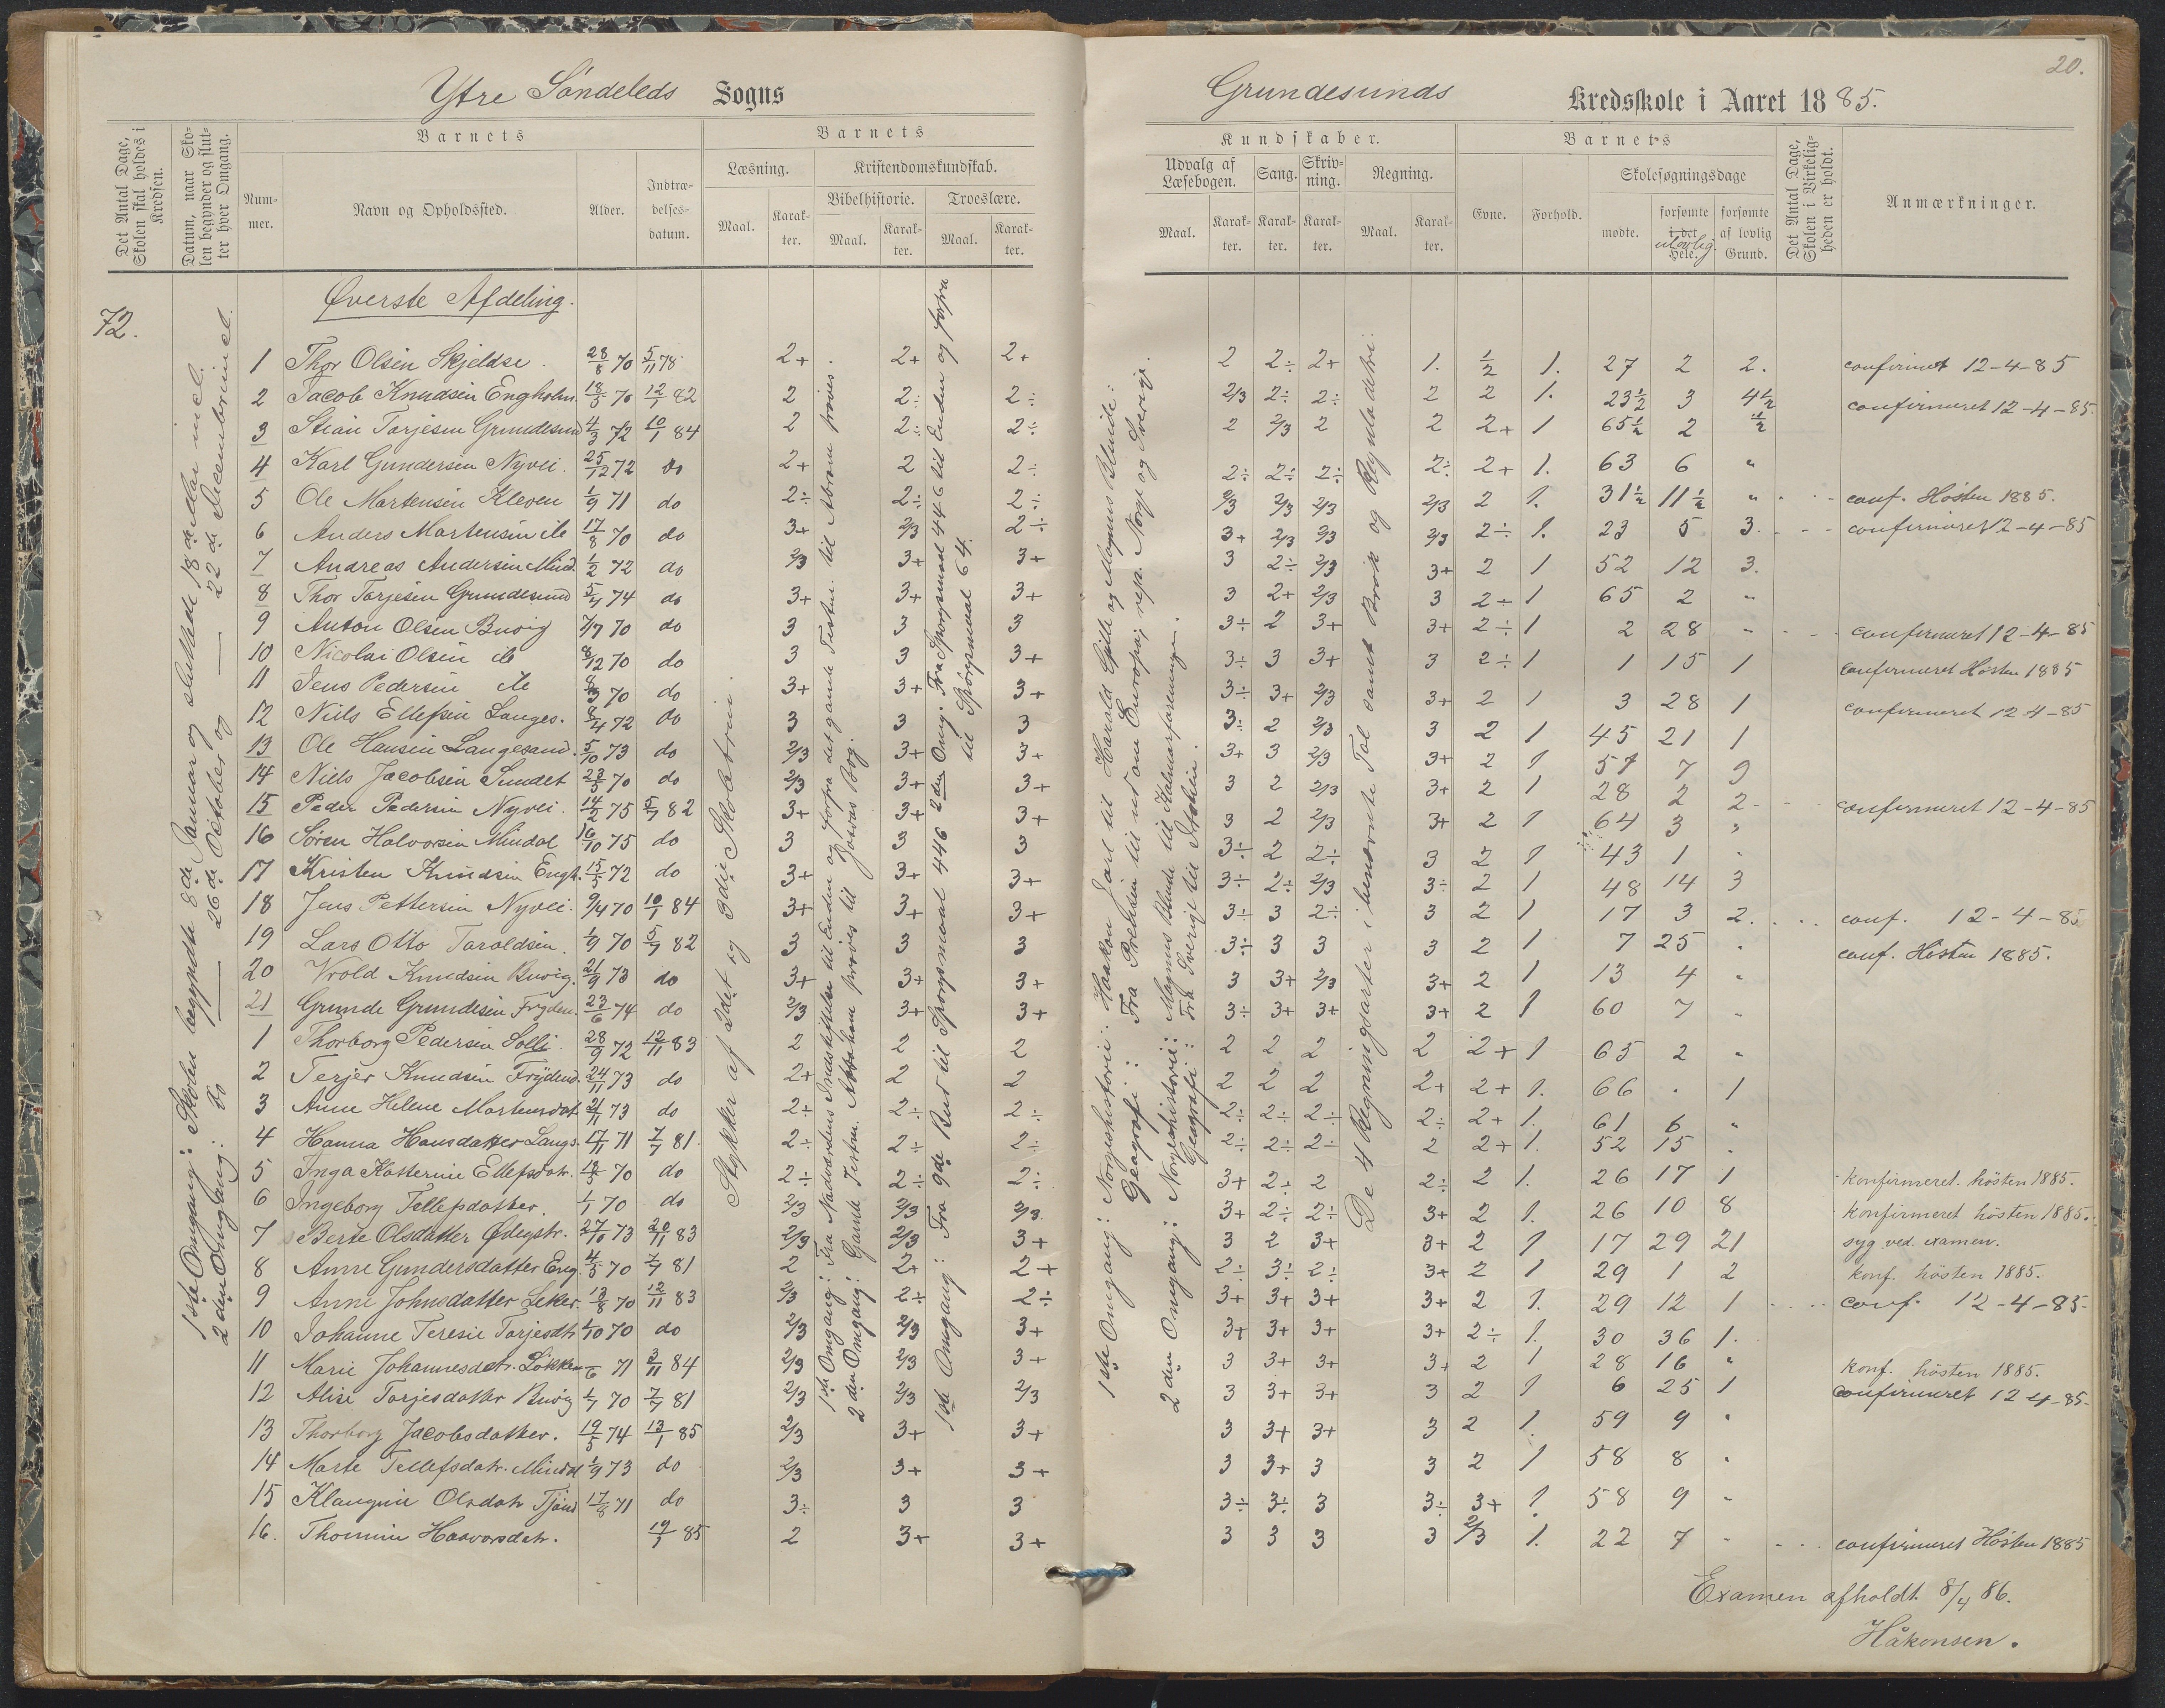 20.
Ytre Søndeleds Sogns
Grundesunds Kredsskole i Aaret 1885.
Det Antal Dage, Skolen skal holdes i Kredsen.
Datum, naar Skolen begynder og slutter hver Omgang.
Barnets
Nummer.
Navn og Opholdssted.
Alder.
Indtrædelsesdatum.
Barnets
Læsning.
Kristendomskundskab.
Bibelhistorie.
Troeslære.
Maal. Karakter. Maal. Karakter. Maal. Karakter.
Kundskaber.
Udvalg af Læsebogen.
Sang.
Skrivning.
Regning.
Maal. Karakter. Karakter. Karakter. Maal. Karakter.
Barnets
Evne.
Forhold.
Skolesøgningsdage
mødte.
forsømte i det Hele.
ulovlig
forsømte af lovlig Grund.
Det Antal Dage, Skolen i Virkeligheden er holdt.
Anmærkninger.
72.
Øverste Afdeling.
1ste Omgang: Skolen begyndte 8de Januar og sluttede 18de Mai incl.
2den Omgang: do 26de October og 22de Decembr incl.
Stykker af 2det og 3die Skoletrin.
1ste Omgang: Fra Nadverdens Indstiftelse til Enden og forfra det gamle Testm. til Abram prøves.
2den Omgang: Gamle Testm. Abraham prøves til Josvas Bog.
1ste Omgang: Fra 9de Bud til Spørgsmaal 446 2den Omg. Fra Spørgsmaal 446 til Enden og forfra
til Spørgsmaal 64.
1ste Omgang: Norgeshistorie: Haakon Jarl til Harald Gille og Magnus Blinde:
Geografi: Fra Preussen til ud om Europa; rep. Norge og Sverige.
2den Omgang: Norgeshistorie: Magnus Blinde til Kalmarforeningen.
Geografi: Fra Sverige til Italien.
De 4 Regningsarter i benævnte Tal samt Brøk og Reguladetri.
1 Thor Olsen Skjeldse. 28/8 70 5/11 78 2+ 2+ 2+ 2 2÷ 2+ 1. 1/2 1. 27 2 2. confirmet 12-4-85
2 Jacob Knudsen Engholm. 18/5 70 12/1 82 2 2÷ 2÷ 2/3 2÷ 2÷ 2 2 1. 23½ 3 4½ confirmeret 12-4-85.
3 Stian Torjesen Grundesund 4/3 72 10/1 84 2 2÷ 2÷ 2 2/3 2 2 2+ 1 65½ 2 ½
4 Karl Gundersen Nyvei. 25/12 72 do 2+ 2 2÷ 2÷ 2÷ 2÷ 2÷ 2+ 1. 63 6 "
5 Ole Mortensen Kleven 1/9 71 do 2÷ 2÷ 2÷ 2/3 2/3 2/3 2/3 2 1. 31½ 11½ " conf. Høsten 1885.
6 Anders Mortensen do 17/8 70 do 3+ 2/3 2÷ 3+ 2/3 2/3 2/3 2÷ 1. 23 5 3. confirmeret 12-4-85
7 Andreas Andersen Mind. 1/2 72 do 2/3 3+ 3+ 3 2÷ 2/3 3+ 2 1 52 12 3.
8 Thor Torjesen Grundesund 5/4 74 do 3+ 3+ 3+ 3 2+ 2/3 3 2÷ 1 65 2 "
9 Anton Olsen Buvig 7/7 70 do 3 3 3 3÷ 2 3+ 3+ 2÷ 1 2 28 - confirmeret 12-4-85
10 Nicolai Olsen do 8/12 70 do 3 3 3+ 3÷ 3 3+ 3 2÷ 1 1 15 1 confirmeret Høsten 1885
11 Jens Pedersen do 8/3 70 do 3+ 3+ 3+ 3÷ 3+ 2/3 3+ 2 1 3 28 1 confirmeret 12-4-85
12 Niels Ellefsen Langes. 8/4 72 do 3 3 3 3÷ 2 2/3 3 2 1 45 21 1
13 Ole Hansen Langesand. 5/10 73 do 2/3 3+ 3+ 3+ 3 2/3 3+ 2 1 57 7 9
14 Niels Jacobsen Sundet 23/5 70 do 2/3 3+ 3+ 3 2 2/3 3+ 2 1 28 2 2 confirmeret 12-4-85
15 Peder Pedersen Nyvei. 14/2 75 5/7 82 3+ 3+ 3+ 3 2 2/3 3+ 2 1 64 3 "
16 Søren Halvorsen Mindal 16/10 75 do 3 3 3 3÷ 2 2÷ 3 2 1 43 1 -
17 Kristen Knudsen Engh. 15/5 72 do 3+ 3+ 3+ 3÷ 2÷ 2/3 3÷ 2 1 48 14 3
18 Jens Pettersen Nyvei. 9/4 70 10/1 84 3+ 3+ 3+ 3÷ 3 2÷ 3 2 1 17 3 2. conf. 12-4-85
19 Lars Otto Taroldsen. 1/9 70 5/7 82 3 3 3 3÷ 3 3 3 2 1 7 25 . conf. Høsten 1885.
20 Vrold Knudsen Buvig. 21/9 73 do 3+ 3+ 3+ 3 3+ 2/3 3+ 2 1 13 4 "
21 Grunde Grundesen Fryden. 23/6 74 do 2/3 3+ 3+ 3÷ 3+ 3+ 3+ 2 1 60 7 -
1 Thorborg Pedersen Solli. 28/9 72 12/11 83 2 2 2 2 2 2 2 2+ 1 65 2 "
2 Terjer Knudsen Frydend. 24/11 73 do 2+ 2 2 2 2 2 2+ 2+ 1. 66 . 1
3 Anne Helene Mortensdat. 21/11 73 do 2÷ 2÷ 2÷ 2÷ 2÷ 2÷ 2÷ 2+ 1. 61 6 "
4 Hanna Hansdatter Langs. 17/11 71 7/7 81. 2÷ 2÷ 2÷ 2÷ 2÷ 2÷ 2 2+ 1. 52 15 .
5 Inga Katterine Ellefsdatr. 13/5 70 do 2÷ 2÷ 2÷ 3+ 2÷ 2 2÷ 2 1. 26 17 1 konfirmeret. hösten 1885.
6 Ingeborg Tellefsdatter. 1/1 70 do 2/3 2/3 2/3 3+ 2÷ 2÷ 3+ 2 1. 26 10 8 konfirmeret hösten 1885.
7 Berte Olsdatter Ødegstr. 27/10 73 20/11 83 2/3 2/3 3+ 3 2 3+ 3+ 2 1 17 29 21 syg ved examen.
8 Anne Gundersdatter Eng. 4/5 70 7/7 81 2 2+ 2+ 2÷ 3÷ 2÷ 3+ 2 1 29 1 2 konf. hösten 1885.
9 Anne Johnsdatter Leker. 13/8 70 12/11 83 2/3 2÷ 2÷ 3+ 3+ 3+ 3+ 2 1. 29 12 1 conf. 12-4-85.
10 Johanne Teresie Torjesdtr 1/10 70 do 2/3 2/3 3+ 3+ 3+ 3+ 3+ 2÷ 1. 30 36 1.
11 Marie Johannesdatr. Løkken 6 71 3/11 84 2/3 2/3 3+ 3 3+ 3+ 3+ 2 1 28 16 " konf. hösten 1885.
12 Alise Torjesdatter Buvig 1/7 70 7/7 81 2/3 2/3 2/3 3 3+ 3+ 3 2 1 6 25 1 confirmeret 12 4-85.
13 Thorborg Jacobsdatter. 19/5 74 13/1 85 2/3 3+ 3+ 3 3+ 3+ 3 2 1. 59 9 "
14 Marte Tellefsdatr. Mindal 1/9 73 do 2/3 3+ 3+ 3 3+ 3 3 2 1 58 8 "
15 Klangine Olsdatr Tjønd 17/8 71 do 3÷ 3 3 3÷ 3÷ 3 3÷ 3+ 1. 58 9 -
16. Thomine Haavorsdatr. 19/1 85 2 3+ 3+ 3 3 3 3 2/3 1. 22 7 - confirmeret Høsten 1885
Examen afholdt 8/4 86.
Håkonsen.